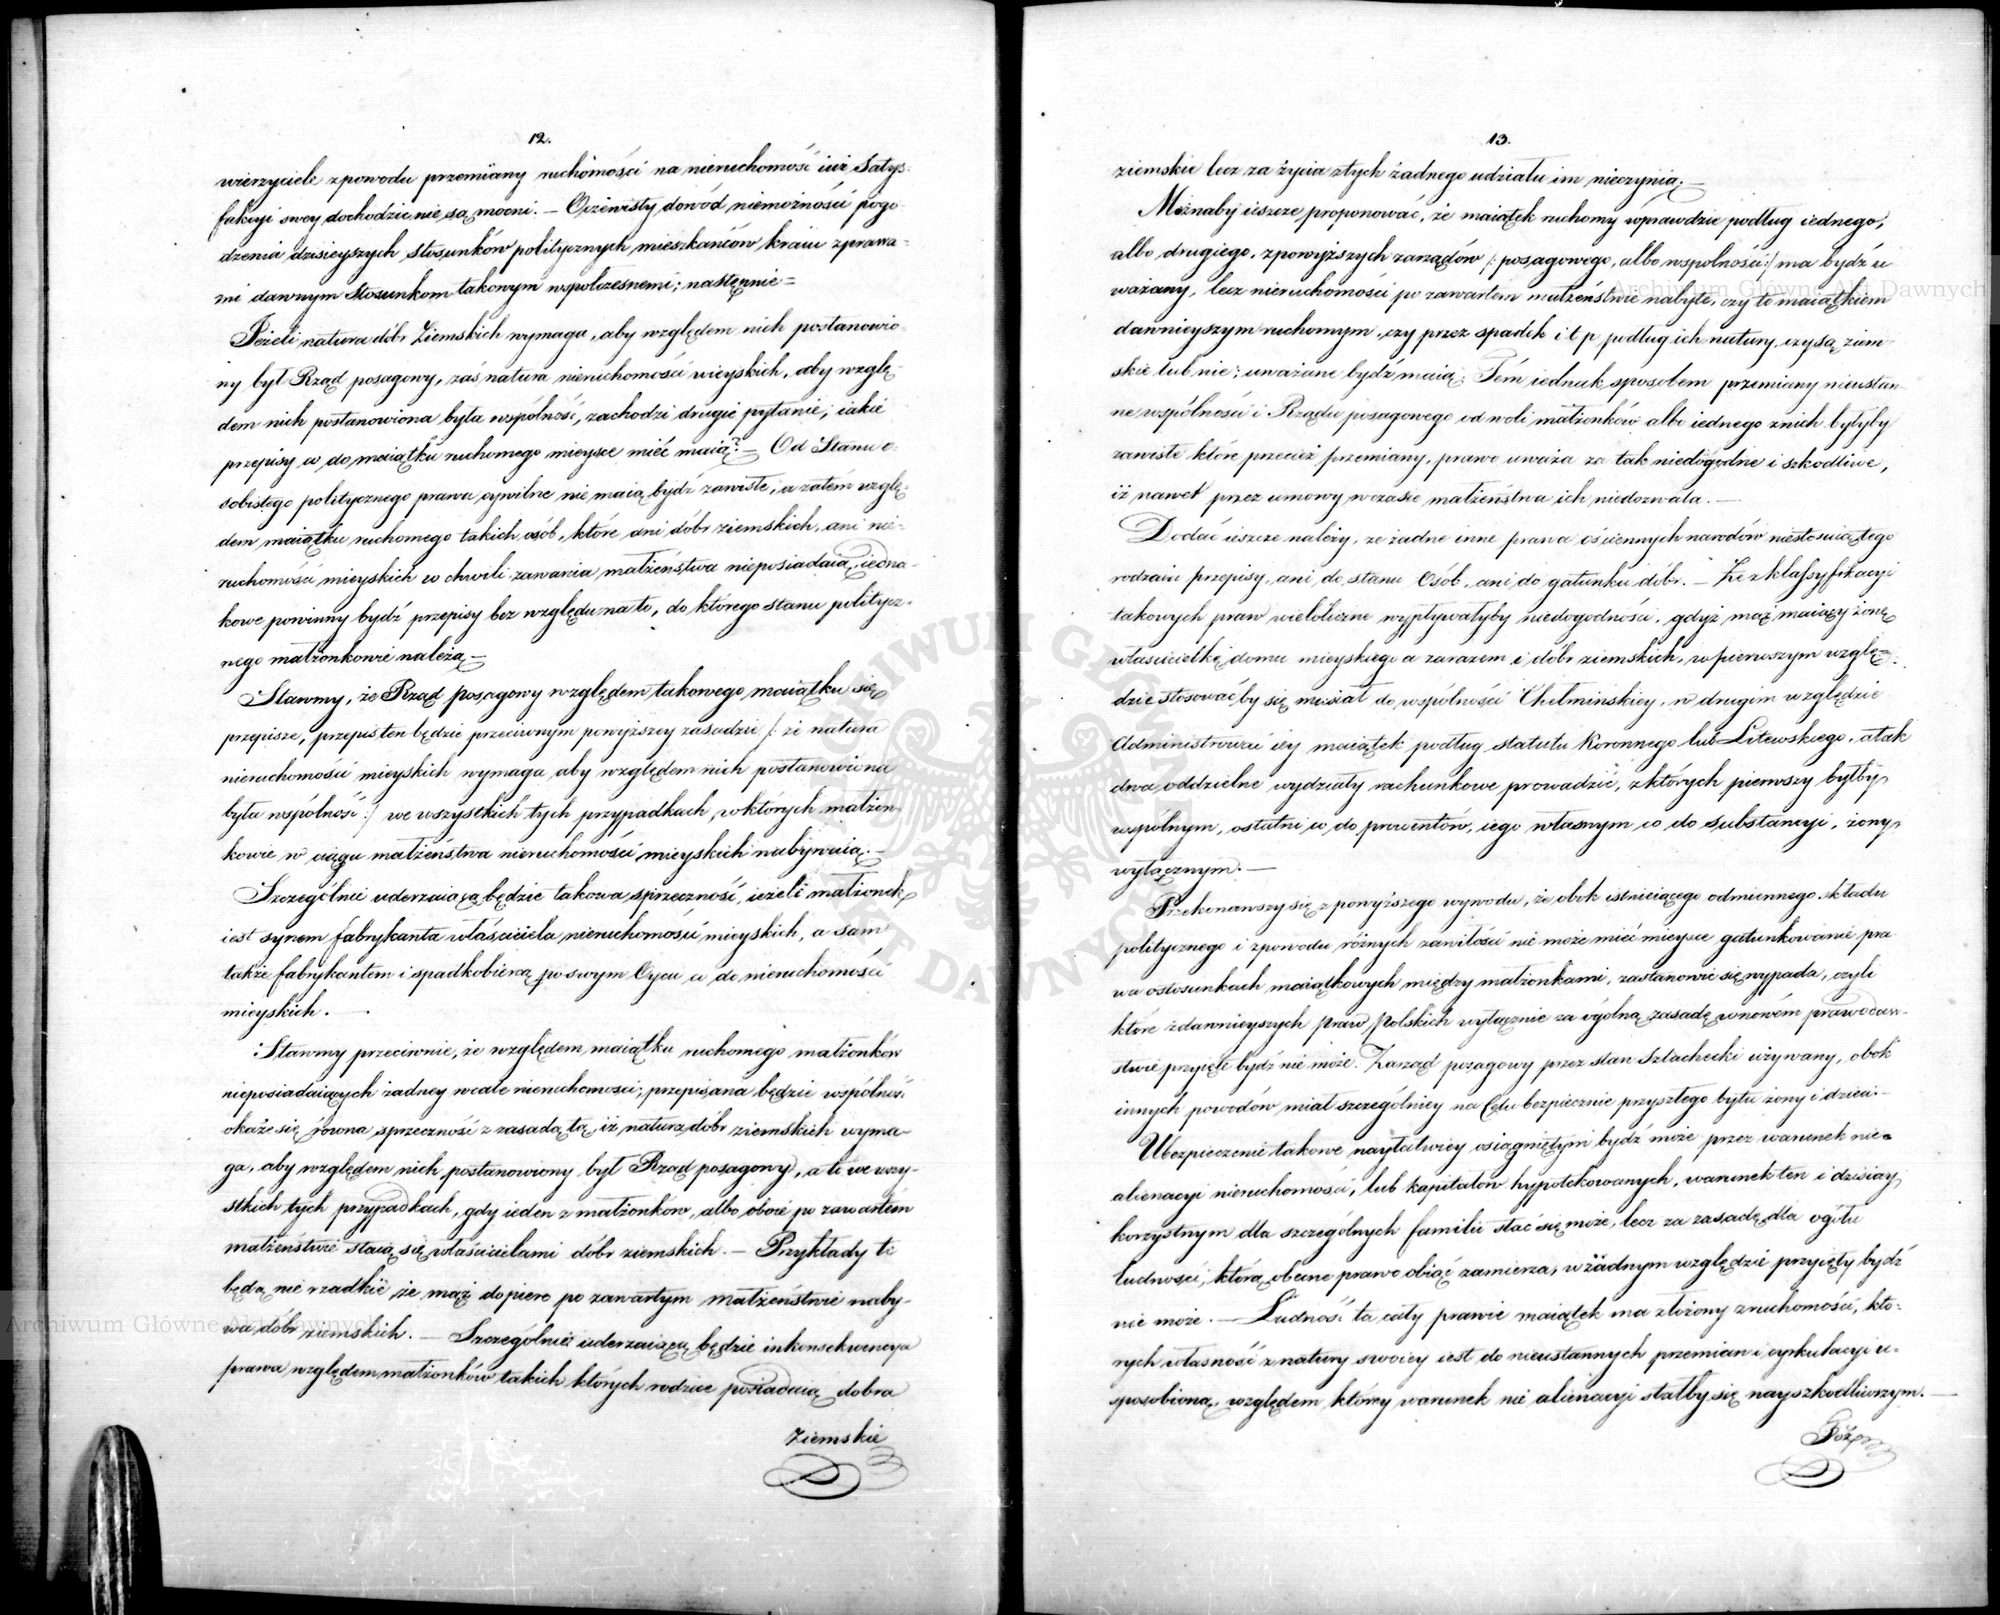 12.
wierzyciele z powodu przemiany ruchomości na nieruchomość iuż Satys-
fakcyi swey dochodzić nie są mocni. — Oczewisty dowód niemożności pogo-
dzenia dzisieyszych stosunków politycznych mieszkańców kraiu z prawa-
mi dawnym stosunkom takowym współczesnemi; następnie =
Jeżeli natura dóbr Ziemskich wymaga, aby względem nich postanowio-
ny był Rząd posagowy, zaś natura nieruchomości mieyskich, aby wzglę-
dem nich postanowiona była wspólność, zachodzi drugie pytanie; iakie
przepisy co do maiątku ruchomego mieysce mieć maią? — Od Stanu o-
sobistego politycznego prawa cywilne nie maią bydź zawisłe, a zatém wzglę-
dem maiątku ruchomego takich osób, które ani dóbr ziemskich, ani nie-
ruchomości mieyskich w chwili zawarcia małżeństwa nieposiadaią, iedna-
kowe powinny bydź przepisy bez względu na to, do którego stanu politycz-
nego małżonkowie należą —
Stawmy, że Rząd posagowy względem takowego maiątku się
przepisze, przepis ten będzie przeciwnym powyższey zasadzie /: że natura
nieruchomości mieyskich wymaga aby względem nich postanowiona
była wspólność :/ we wszystkich tych przypadkach, w których małżon-
kowie w ciągu małżeństwa nieruchomości mieyskich nabywaią. —
Szczególnie uderzaiącą będzie takowa sprzeczność, ieżeli małżonek
iest synem fabrykanta właściciela nieruchomości mieyskich, a sam
także fabrykantem i spadkobiercą po swym Oycu co do nieruchomości
mieyskich. —
Stawmy przeciwnie, że względem maiątku ruchomego małżonków
nieposiadaiących żadney wcale nieruchomości; przepisana będzie wspólność
okaże się równa sprzeczność z zasadą tą, iż natura dóbr ziemskich wyma-
ga, aby względem nich postanowiony był Rząd posagowy, a to we wszy-
stkich tych przypadkach, gdy ieden z małżonków, albo oboie po zawartém
małżeństwie staią się właścicielami dóbr ziemskich. — Przykłady te
będą nie rzadkie, że mąż dopiero po zawartym małżeństwie naby-
wa dóbr ziemskich. — Szczególnie uderzaiącą będzie inkonsekwencya
prawa względem małżonków takich których rodzice posiadaią dobra
Ziemskie
13.
ziemskie lecz za życia z tych żadnego udziału im nieczynią. —
Możnaby ieszcze proponować, że maiątek ruchomy wprawdzie podług iednego,
albo drugiego, z powyższych zarządów /: posagowego, albo wspólności :/ ma bydź u
ważany, lecz nieruchomości po zawartem małżeństwie nabyte, czy to maiątkiem
dawnieyszym ruchomym, czy przez spadek i t p podług ich natury, czy są ziem-
skie lub nie; uważane bydź maią. Tém iednak sposobem przemiany nieustan-
ne wspólności i Rządu posagowego od woli małżonków albo iednego z nich byłyby
zawisłe które przecież przemiany, prawo uważa za tak niedogodne i szkodliwe,
iż nawet przez umowy w czasie małżeństwa ich niedozwala. —
Dodać ieszcze należy, że żadne inne prawa ościennych narodów niestosuią tego
rodzaiu przepisy, ani do stanu Osób, ani do gatunku dóbr. — Ze z klassyfikacyi
takowych praw wieloliczne wypływałyby niedogodności, gdyż mąż maiący żonę
właścicielkę domu mieyskiego a zarazem i dóbr ziemskich, w pierwszym wzglę-
dzie stosować by się musiał do wspólności Chełmińskiey, w drugim względzie
Administrować iey maiątek podług statutu Koronnego lub Litewskiego, a tak
dwa oddzielne wydziały rachunkowe prowadzić, z których pierwszy byłby
wspólnym, ostatni co do prowentów, iego własnym co do substancyi, żony
wyłącznym. —
Przekonawszy się z powyższego wywodu, że obok istnieiącego odmiennego składu
politycznego i z powodu różnych zawiłości nie może mieć mieysce gatunkowanie pra
wa o stosunkach maiątkowych między małżonkami, zastanowić się wypada, czyli
które z dawnieyszych praw Polskich wyłącznie za ogólną zasadę w nowém prawodaw-
stwie przyięte bydź nie może. Zarząd posagowy przez stan Szlachecki używany, obok
innych powodów miał szczególniey na celu bezpiecznie przyszłego bytu żony i dzieci. —
Ubezpieczenie takowe nayłatwiey osiągniętym bydź może przez warunek nie-
alienacyi nieruchomości, lub kapitałów hypotekowanych, warunek ten i dzisiay
korzystnym dla szczególnych familii stać się może, lecz za zasadę dla ogółu
ludności, którą obecne prawo obiąć zamierza, w żadnym względzie przyięty bydź
nie może. — Ludność ta cały prawie maiątek ma złożony z ruchomości, któ-
rych własność z natury swoiey iest do nieustannych przemian i cyrkulacyi u-
sposobioną, względem któréy warunek nie alienacyi stałby się nayszkodliwszym. —